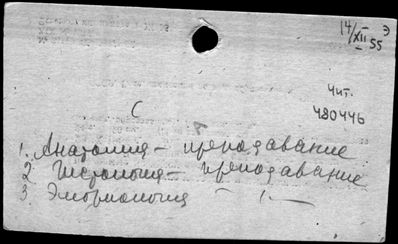 14/XII 55
Э
Чит.
480446
С
1. Анатомия – преподавание
2 Гистология – преподавание
3. Эмбриология – " –